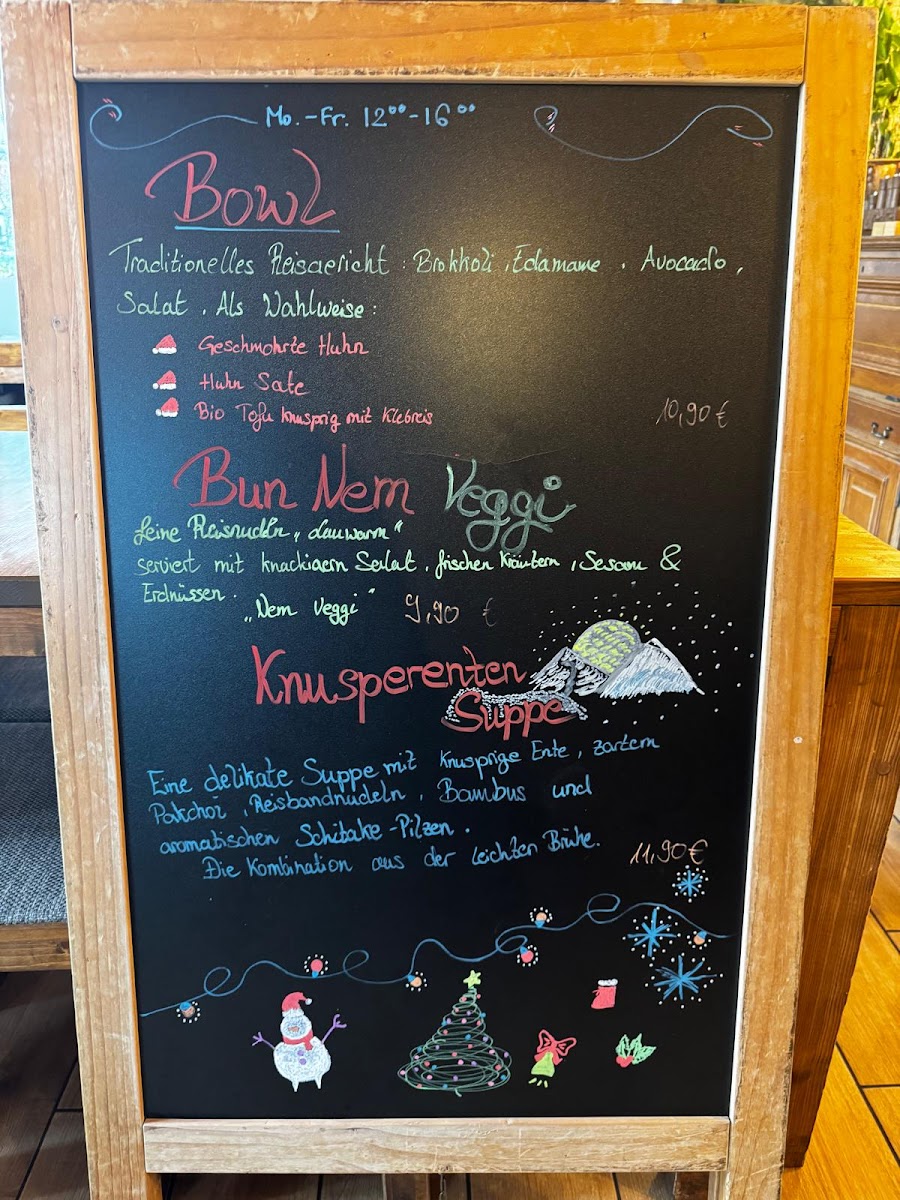 Mo.-Fr. 12⁰⁰-16⁰⁰
Bowl
Traditionelles Reisgericht : Brokkoli , Edamame , Avocado ,
Salat . Als Wahlweise :
Geschmohrte Huhn
Huhn Sate
Bio Tofu knusprig mit Klebreis
10,90 €
Bun Nem Veggi
feine Reisnudeln „lauwarm“
serviert mit knackigem Salat , frischen Kräutern , Sesam &
Erdnüssen .
„Nem Veggi“ 9,90 €
Knusperenten
Suppe
Eine delikate Suppe mit knusprige Ente , zartem
Pakchoi , Reisbandnudeln , Bambus und
aromatischen Schitake-Pilzen .
Die Kombination aus der leichten Brühe.
11,90 €